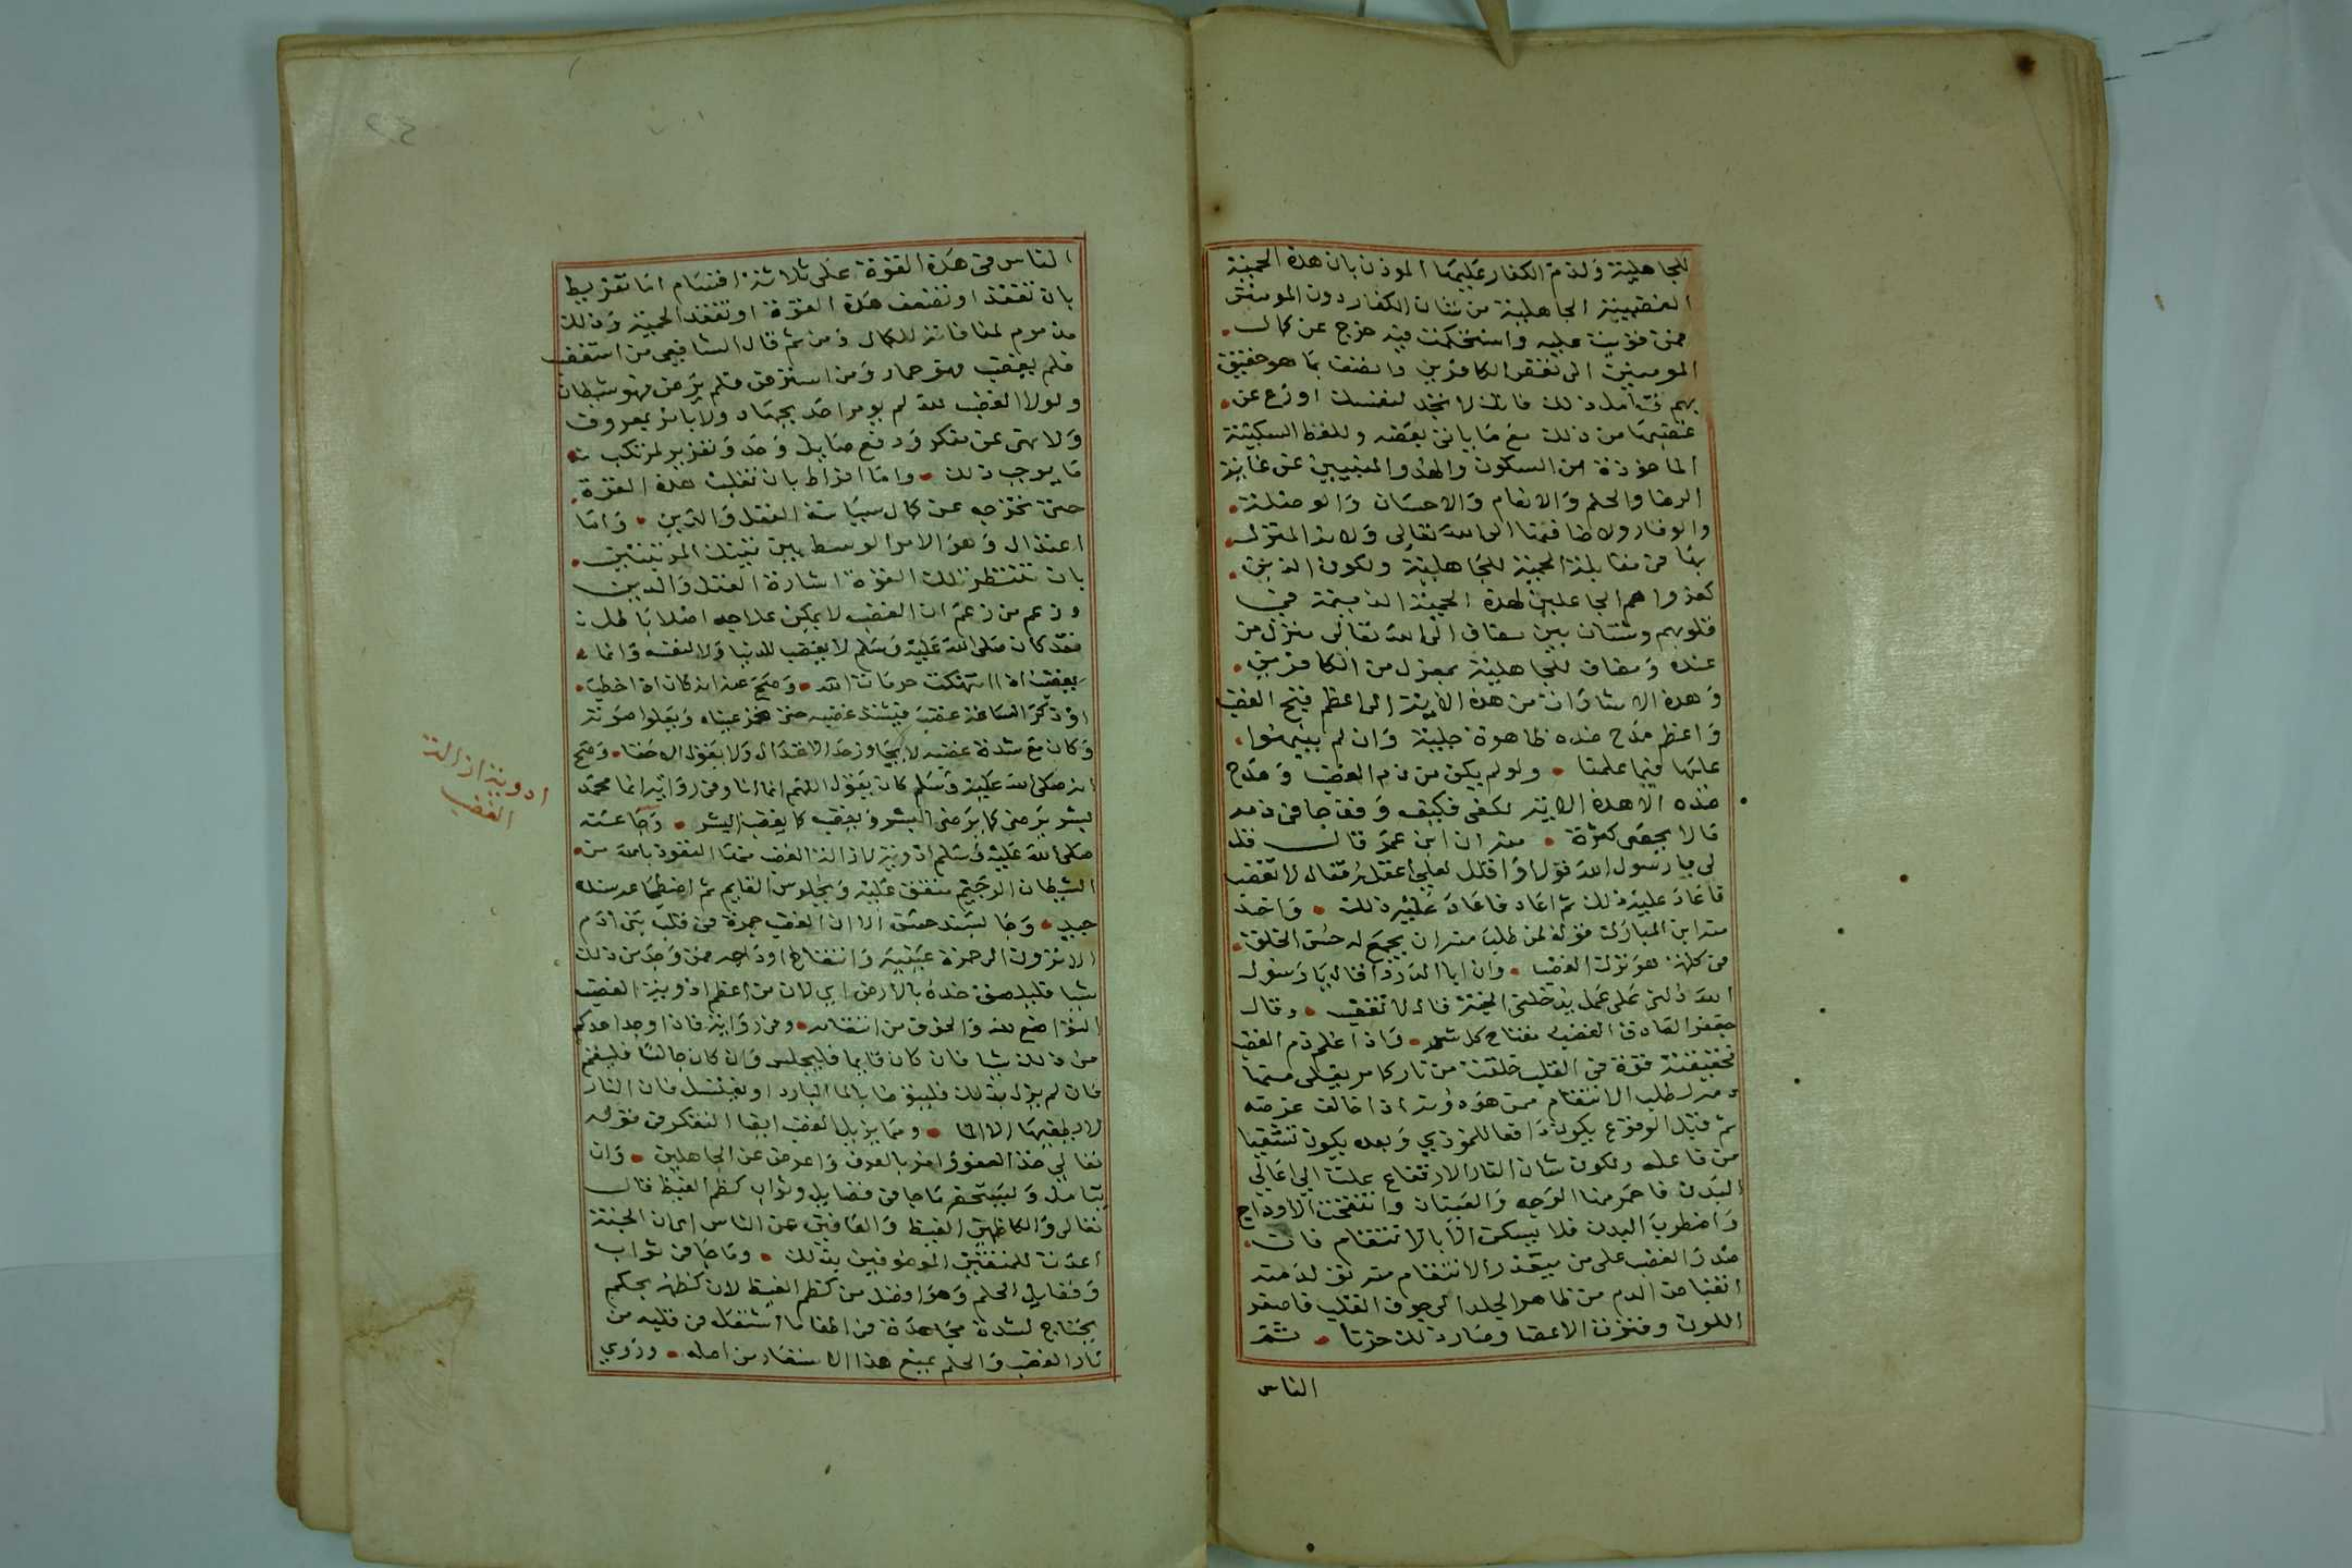 للجاهلية ولذم الكفار عليها الموذن بان هذه الحمية
الغضبية الجاهلية من شان الكفار دون المومنين
فمن قويت عليه واستحكمت فيه خرج عن كمال
المومنين الى نقص الكافرين واتصف بما هو حقيق
بهم فتامل ذلك فانك لا تجد لنفسك اوزع عن
غضبها من ذلك مع ما ياتي بعضه وللفظ السكينة
الماخوذة من السكون والهدو المنبيين عن غاية
الرضا والحلم والانعام والاحسان والوصلة
والوقار ولاضافتها الى الله تعالى ولانه المتولى
بها في مقابلة الحمية للجاهلية ولكون الذين
كفروا هم الجاعلين لهذه الحمية الذميمة في
قلوبهم وشتان بين مضاف الى الله تعالى منزل من
عنده ومضاف للجاهلية بمعزل من الكافرين
وهذه الاشارات من هذه الاية الى اعظم قبح الغضب
واعظم مدح ضده ظاهرة جلية وان لم ينبهوا
عليها فيما علمنا ولو لم يكن من ذم الغضب ومدح
ضده الا هذه الاية لكفى فكيف وقد جا في ذمه
ما لا يحصى كثرة منه ان ابن عمر قال قلت
لي يا رسول الله قولا واقلل لعلي اعقله فقال لا تغضب
فاعاد عليه ذلك ثم اعاد فاعاد عليه ذلك واخذ
منه ابن المبارك قوله لمن طلب منه ان يجمع له حسن الخلق
في كلمة هو ترك الغضب وان ابا الدردا قال يا رسول
الله دلني على عمل يدخلني الجنة قال لا تغضب وقال
جعفر الصادق الغضب مفتاح كل شر واذا علم ذم الغضب
فحقيقته قوة في القلب خلقت من نار كامن يغلى منها
دمه لطلب الانتقام ممن هو دونه اذا خالف غرضه
ثم قبل الوقوع يكون دافعا للموذي وبعده يكون تشفيا
من فاعله ولكون شان النار الارتفاع علت الي اعالي
البدن فاحمر منها الوجه والعينان وانتفخت الاوداج
واضطرب البدن فلا يسكن الا بالانتقام فان
صدر الغضب على من يتعذر الانتقام منه تولد منه
انقباض الدم من ظاهر الجلد الى جوف القلب فاصفر
اللون وفترت الاعضا وصار ذلك حزنا ثم
الناس
الناس في هذه القوة على ثلاثة اقسام اما تفريط
بان تفقد او تضعف هذه القوة او تفقد الحمية وذلك
مذموم لمنافاته للكمال ومن ثم قال الشافعي من استغضب
فلم يغضب فهو حمار ومن استرضى فلم يرض فهو شيطان
ولولا الغضب لله لم يومر احد بجهاد ولا بامر بمعروف
ولا نهى عن منكر ودفع صايل وحد وتعزير لمرتكب
ما يوجب ذلك واما افراط بان تغلب هذه القوة
حتى تخرجه عن كمال سياسة العقل والدين واما
اعتدال وهو الامر الوسط بين تينك المرتبتين
بان تنتظر تلك القوة اشارة العقل والدين
وزعم من زعم ان الغضب لا يمكن علاجه اصلا باطل
فقد كان صلى الله عليه وسلم لا يغضب للدنيا ولا لنفسه وانما
يغضب اذا انتهكت حرمات الله وصح عنه انه كان اذا خطب
وذكر الساعة غضب فيشتد غضبه حتى تحمر عيناه ويعلوا صوته
وكان مع شدة غضبه لا يجاوز حد الاعتدال ولا يقول الا حقا وصح
انه صلى الله عليه وسلم كان يقول اللهم انما انا وفي رواية انما محمد
بشر يرضى كما يرضى البشر ويغضب كما يغضب البشر وجا عنه
صلى الله عليه وسلم ادوية لازالة الغضب منها التعوذ بالله من
الشيطان الرجيم متفق عليه وبجلوس القايم ثم اضطجاعه سنده
جيد وجا بسند حسن الا ان الغضب جمرة في قلب بني ادم
الا ترون الى حمرة عينيه وانتفاخ اوداجه فمن وجد من ذلك
شيا فليلصق خده بالارض اي لان من اعظم ادوية الغضب
التواضع لله والخوف من انتقامه وفي رواية فاذا وجد احدكم
من ذلك شيا فان كان قايما فليجلس وان كان جالسا فلينم
فان لم يزل بذلك فليتوضا بالما البارد او يغتسل فان النار
لا يطفيها الا الما ومما يزيل الغضب ايضا التفكر في قوله
تعالي خذ العفو وامر بالعرف واعرض عن الجاهلين وان
يتامل ويستحضر ما جا في فضايل وثواب كظم الغيظ قال
تعالى والكاظمين الغيظ والعافين عن الناس اي ان الجنة
اعدت للمتقين الموصوفين بذلك وما جا في ثواب
وفضايل الحلم وهو افضل من كظم الغيظ لان كظمه بحكم
يحتاج لشدة مجاهدة في اطفا ما اشتعل في قلبه من
نار الغضب والحلم يمنع هذا الاستعار من اصله وروي
ادوية ازالة
الغضب